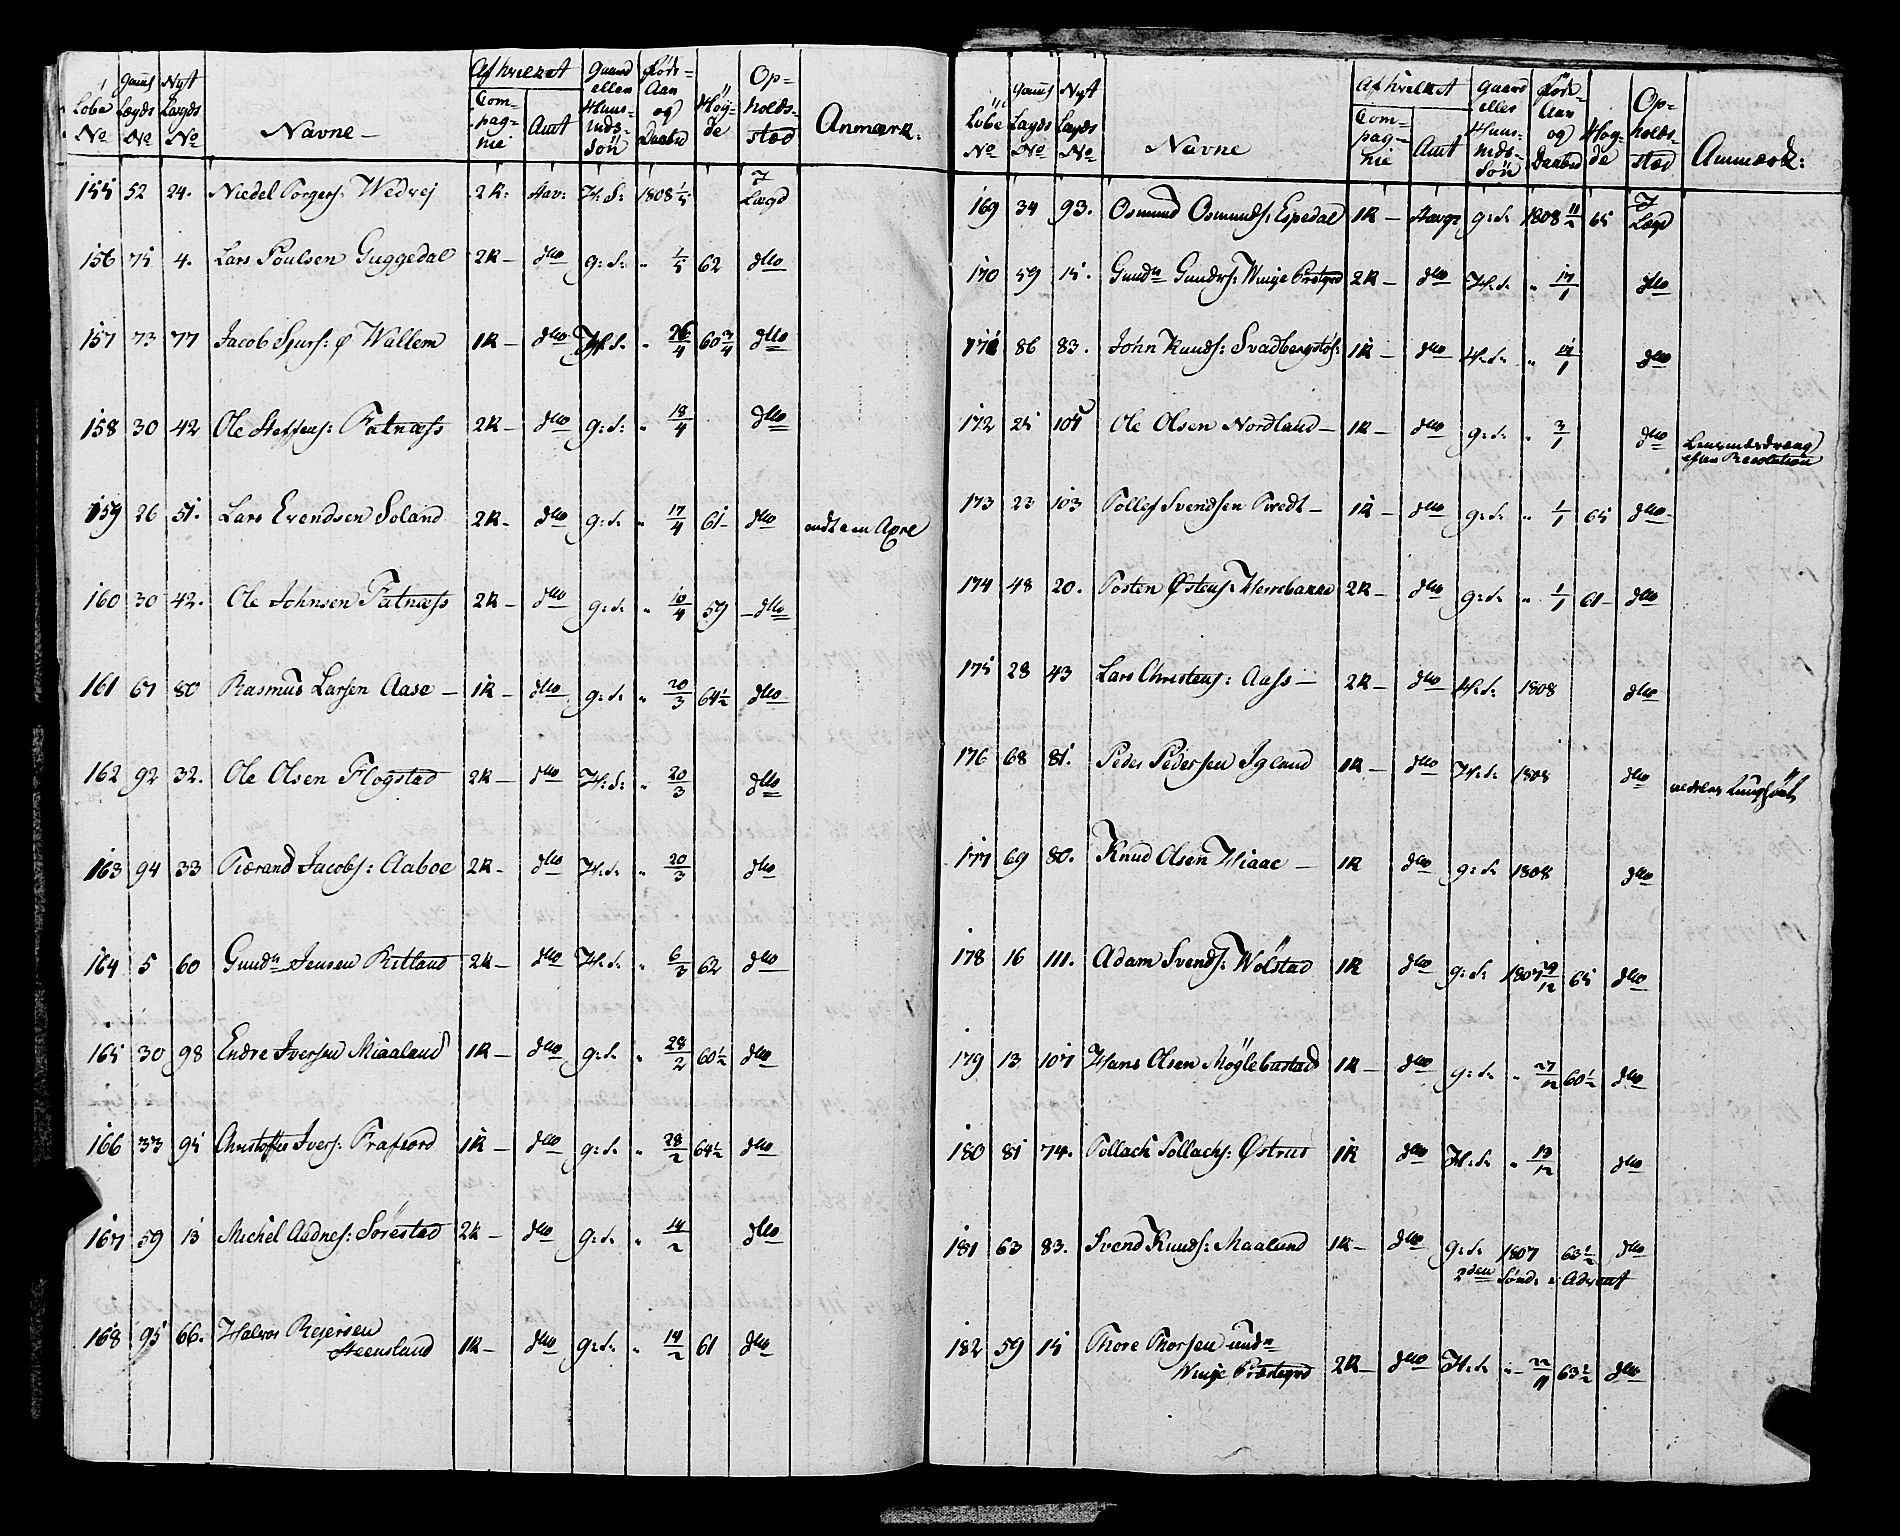 Lobe No | Gaml Lægds No | Nyt Lægds No | Navne | Af hvilket Compagnie | Amt | Gaard eller Huusmds-Søn | Føds-Aar og Daabsd | Høgde | Opholdssted | Anmærk:
155 52 24. Niedel Torgers: Wedvej 2K: Stav: H: S: 1808 1/5 I Lægd
156 75 4. Lars Poulsen Guggedal 2K – dto g: S: " 1/5 62 dto
157 73 77 Jacob Sjurs: Ø Wallem 1K – dto H: S: " 26/4 60 3/4 dto
158 30 42 Ole Steffens: Fatnæss 2K – dto g: S: " 18/4 dto
159 26 51. Lars Evendsen Soland 2K – dto g: S: " 17/4 61 – dto
160 30 42. Ole Johnsen Fatnæss 2K – dto g: S: " 10/4 59 – dto
161 67 80 Rasmus Larsen Aase – 1K – dto g: S: " 20/3 64 1/2 dto
162 92 32. Ole Olsen Flogstad 2K – dto H: S: " 20/3 dto
163 94 33 Tiærand Jacobs: Aaboe 2K – dto H: S: " 20/3 dto
164 5 60 Gundr Jensen Ritland 2K – dto H: S: " 6/3 62 dto
165 30 98 Endre Iversen Miaaland 1K – dto g: S: " 28/2 60 1/2 dto
166 33 95 Christoffer Ivers: Frafiord 1K – dto g: S: " 28/2 64 1/2 dto
167 59 13 Michel Aadnes: Sørestad 2K – dto g: S: " 14/2 dto
168 95 66. Halvor Rejersen
Steensland 1K – dto g: S: " 14/2 61 dto
Lobe No | Gaml Lægds No | Nyt Lægds No | Navne | Af hvilket Compagnie | Amt | Gaard eller Huusmds-Søn | Føds-Aar og Daabsd | Høgde | Opholdssted | Anmærk:
169 34 93. Osmund Osmunds: Espedal 1K – Stavgr g: S: 1808 11/2 65 I Lægd
170 59 15. Gundr Gundrs: Winje Præstgrd 2K – dto H: S: " 17/1 dto
171 86 83. John Knuds: Svadbergstøl: 1K – dto H: S: " 17/1 dto
172 25 104 Ole Olsen Nordland – 1K – dto g: S: " 3/1 dto Lensmædsdræng
efter Resolution
173 23 103 Tollef Svendsen Tvedt – 1K – dto g: S: " 1/1 65 dto
174 48 20. Tosten Østens: Herrebakke 2K – dto g: S: " 1/1 61 – dto
175 28 43 Lars Christens: Aass – 2K – dto H: S: 1808 dto
176 68 81. Peder Pedersen Igland 1K – dto H: S: 1808 dto
177 69 80. Knud Olsen Hiaae – 1K dto g: S: 1808 dto
178 16 111. Adam Svends: Wølstad 1K dto g: S: 1807 29/12 65 dto
179 13 107 Hans Olsen Møglebustad 1K – dto g: S: " 27/12 60 1/2 dto
180 81 74. Tollach Tollachs: Østrus 1K dto H: S: " 19/12 dto
181 63 83. Svend Knuds: Maaland 1K – dto g: S: 1807 63 1/2 dto
2den Sønd: i Advent
182 59 15 Thore Thorsen und
Winje Præstegrd 2K – dto H: S: " – 22/11 63 1/2 dto